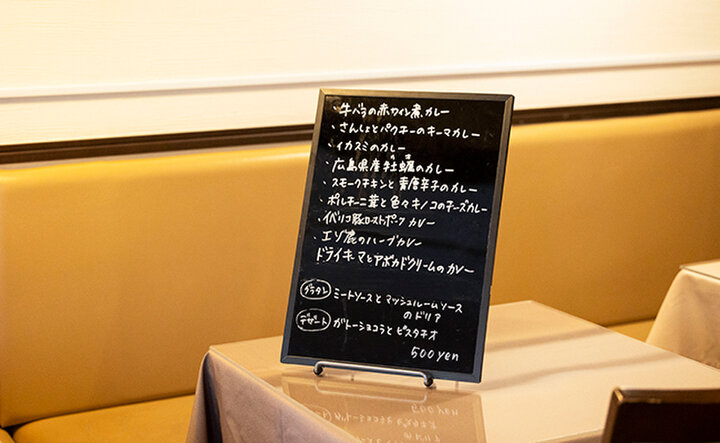 ・牛バラの赤ワイン煮カレー
・さんしょとパクチーのキーマカレー
・イカスミのカレー
・広島県産牡蠣のカレー
・スモークチキンと青唐辛子のカレー
・ポルチーニ茸と色々キノコのチーズカレー
・イベリコ豚ローストポークカレー
・エゾ鹿のハーブカレー
ドライキーマとアボカドクリームのカレー
グラタン ミートソースとマッシュルームソース
のドリア
デザート ガトーショコラとピスタチオ
500yen